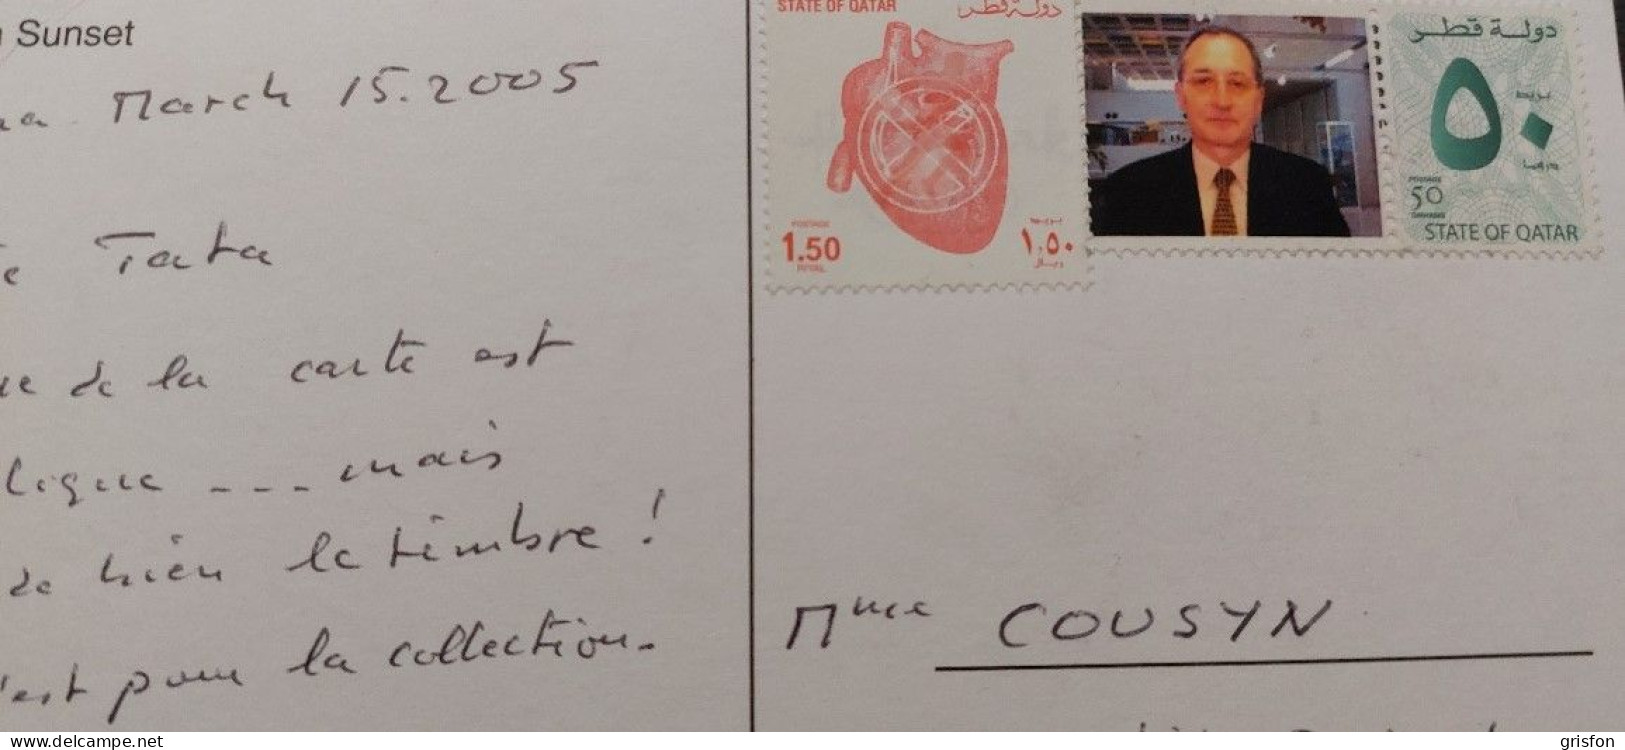 Sunset
March 15.2005
Tata
de la carte est
lique ... mais
de bien le timbre !
'est pour la collection.
STATE OF QATAR دولة قطر
POSTAGE
1.50
RIYAL
بريد
١.٥٠
ريال
دولة قطر
٥٠
بريد
درهما
POSTAGE
50
DIRHAMS
STATE OF QATAR
Mme COUSYN
delcampe.net
grisfon